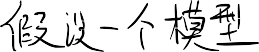 假设一个模型